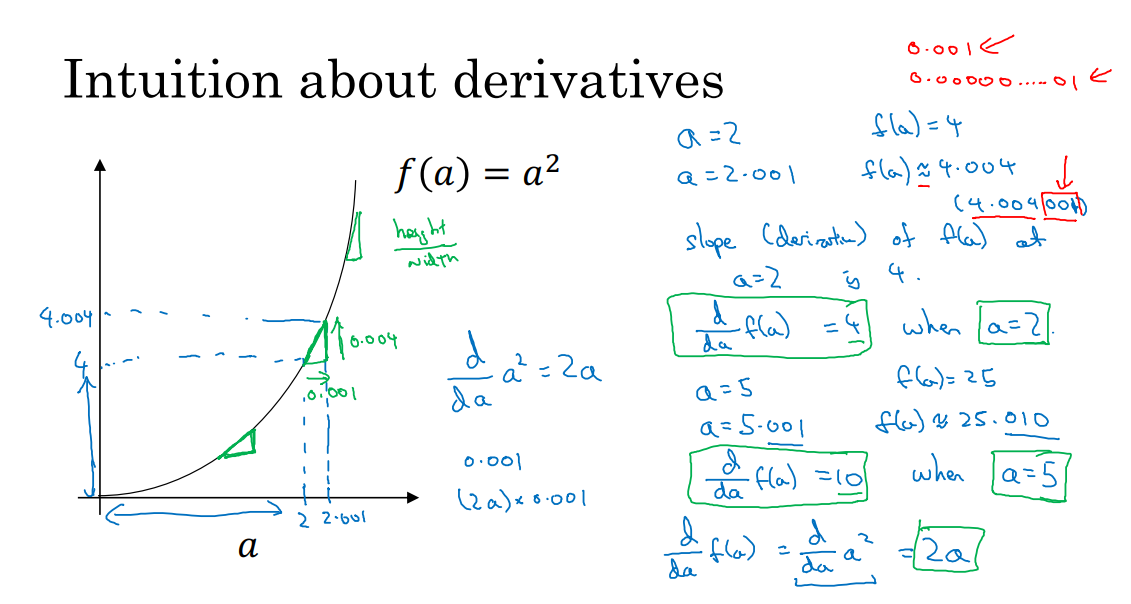 Intuition about derivatives
0.001 ←
0.00000.....01 ←
f(a) = a²
height
width
4.004
4
0.004
0.001
2 2.001
a
d/da a² = 2a
0.001
(2a) × 0.001
a = 2 f(a) = 4
a = 2.001 f(a) ≈ 4.004
(4.004001)
slope (derivative) of f(a) at
a = 2 is 4.
d/da f(a) = 4 when a = 2.
a = 5 f(a) = 25
a = 5.001 f(a) ≈ 25.010
d/da f(a) = 10 when a = 5
d/da f(a) = d/da a² = 2a